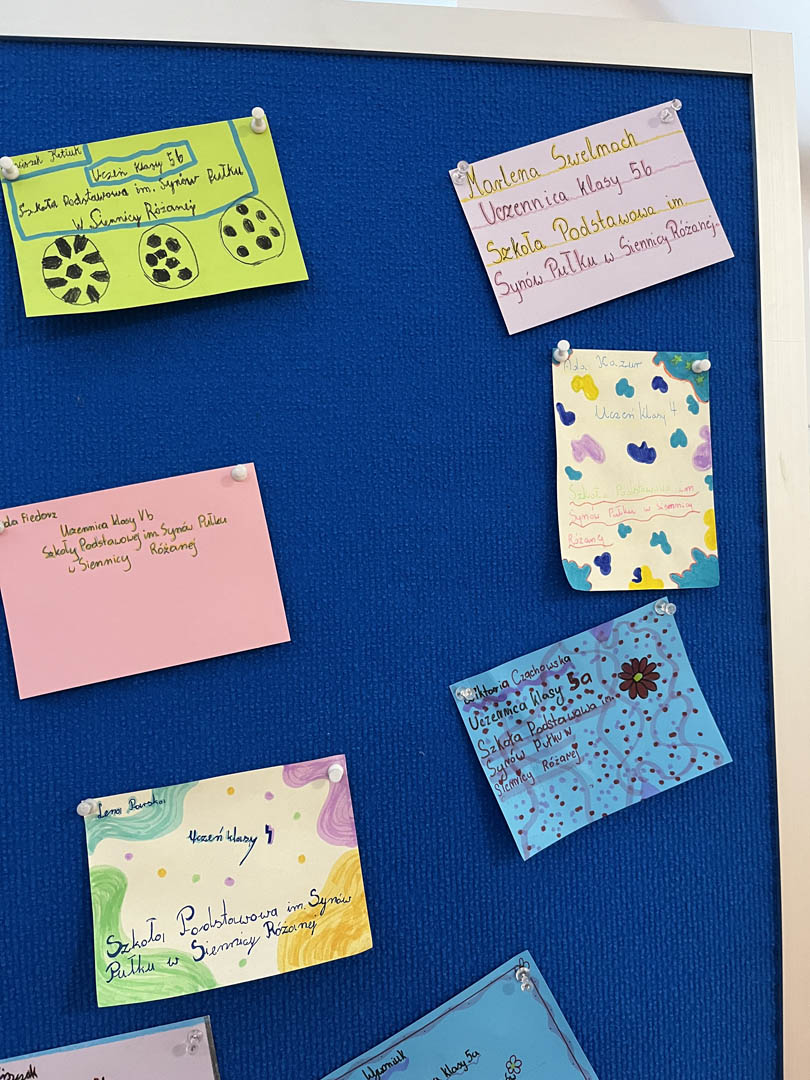 Kitiuk
Uczeń klasy 5b
Szkoła Podstawowa im. Synów Pułku
W Siennicy Różanej
Marlena Swelmach
Uczennica klasy 5b
Szkoła Podstawowa im.
Synów Pułku w Siennicy Różanej.
Ada Kazur
Uczeń klasy 4
Szkoła Podstawowa im
Synów Pułku w siennicy
Różanej
Fiedorz
Uczennica klasy Vb
Szkoły Podstawowej im. Synów Pułku
w Siennicy Różanej
Wiktoria Czachowska
Uczennica klasy 5a
Szkoła Podstawowa im.
Synów Pułku w
Siennicy Różanej
Lena
Uczeń klasy 4
Szkoła Podstawowa im. Synów
Pułku w Siennicy Różanej
klasy 5a